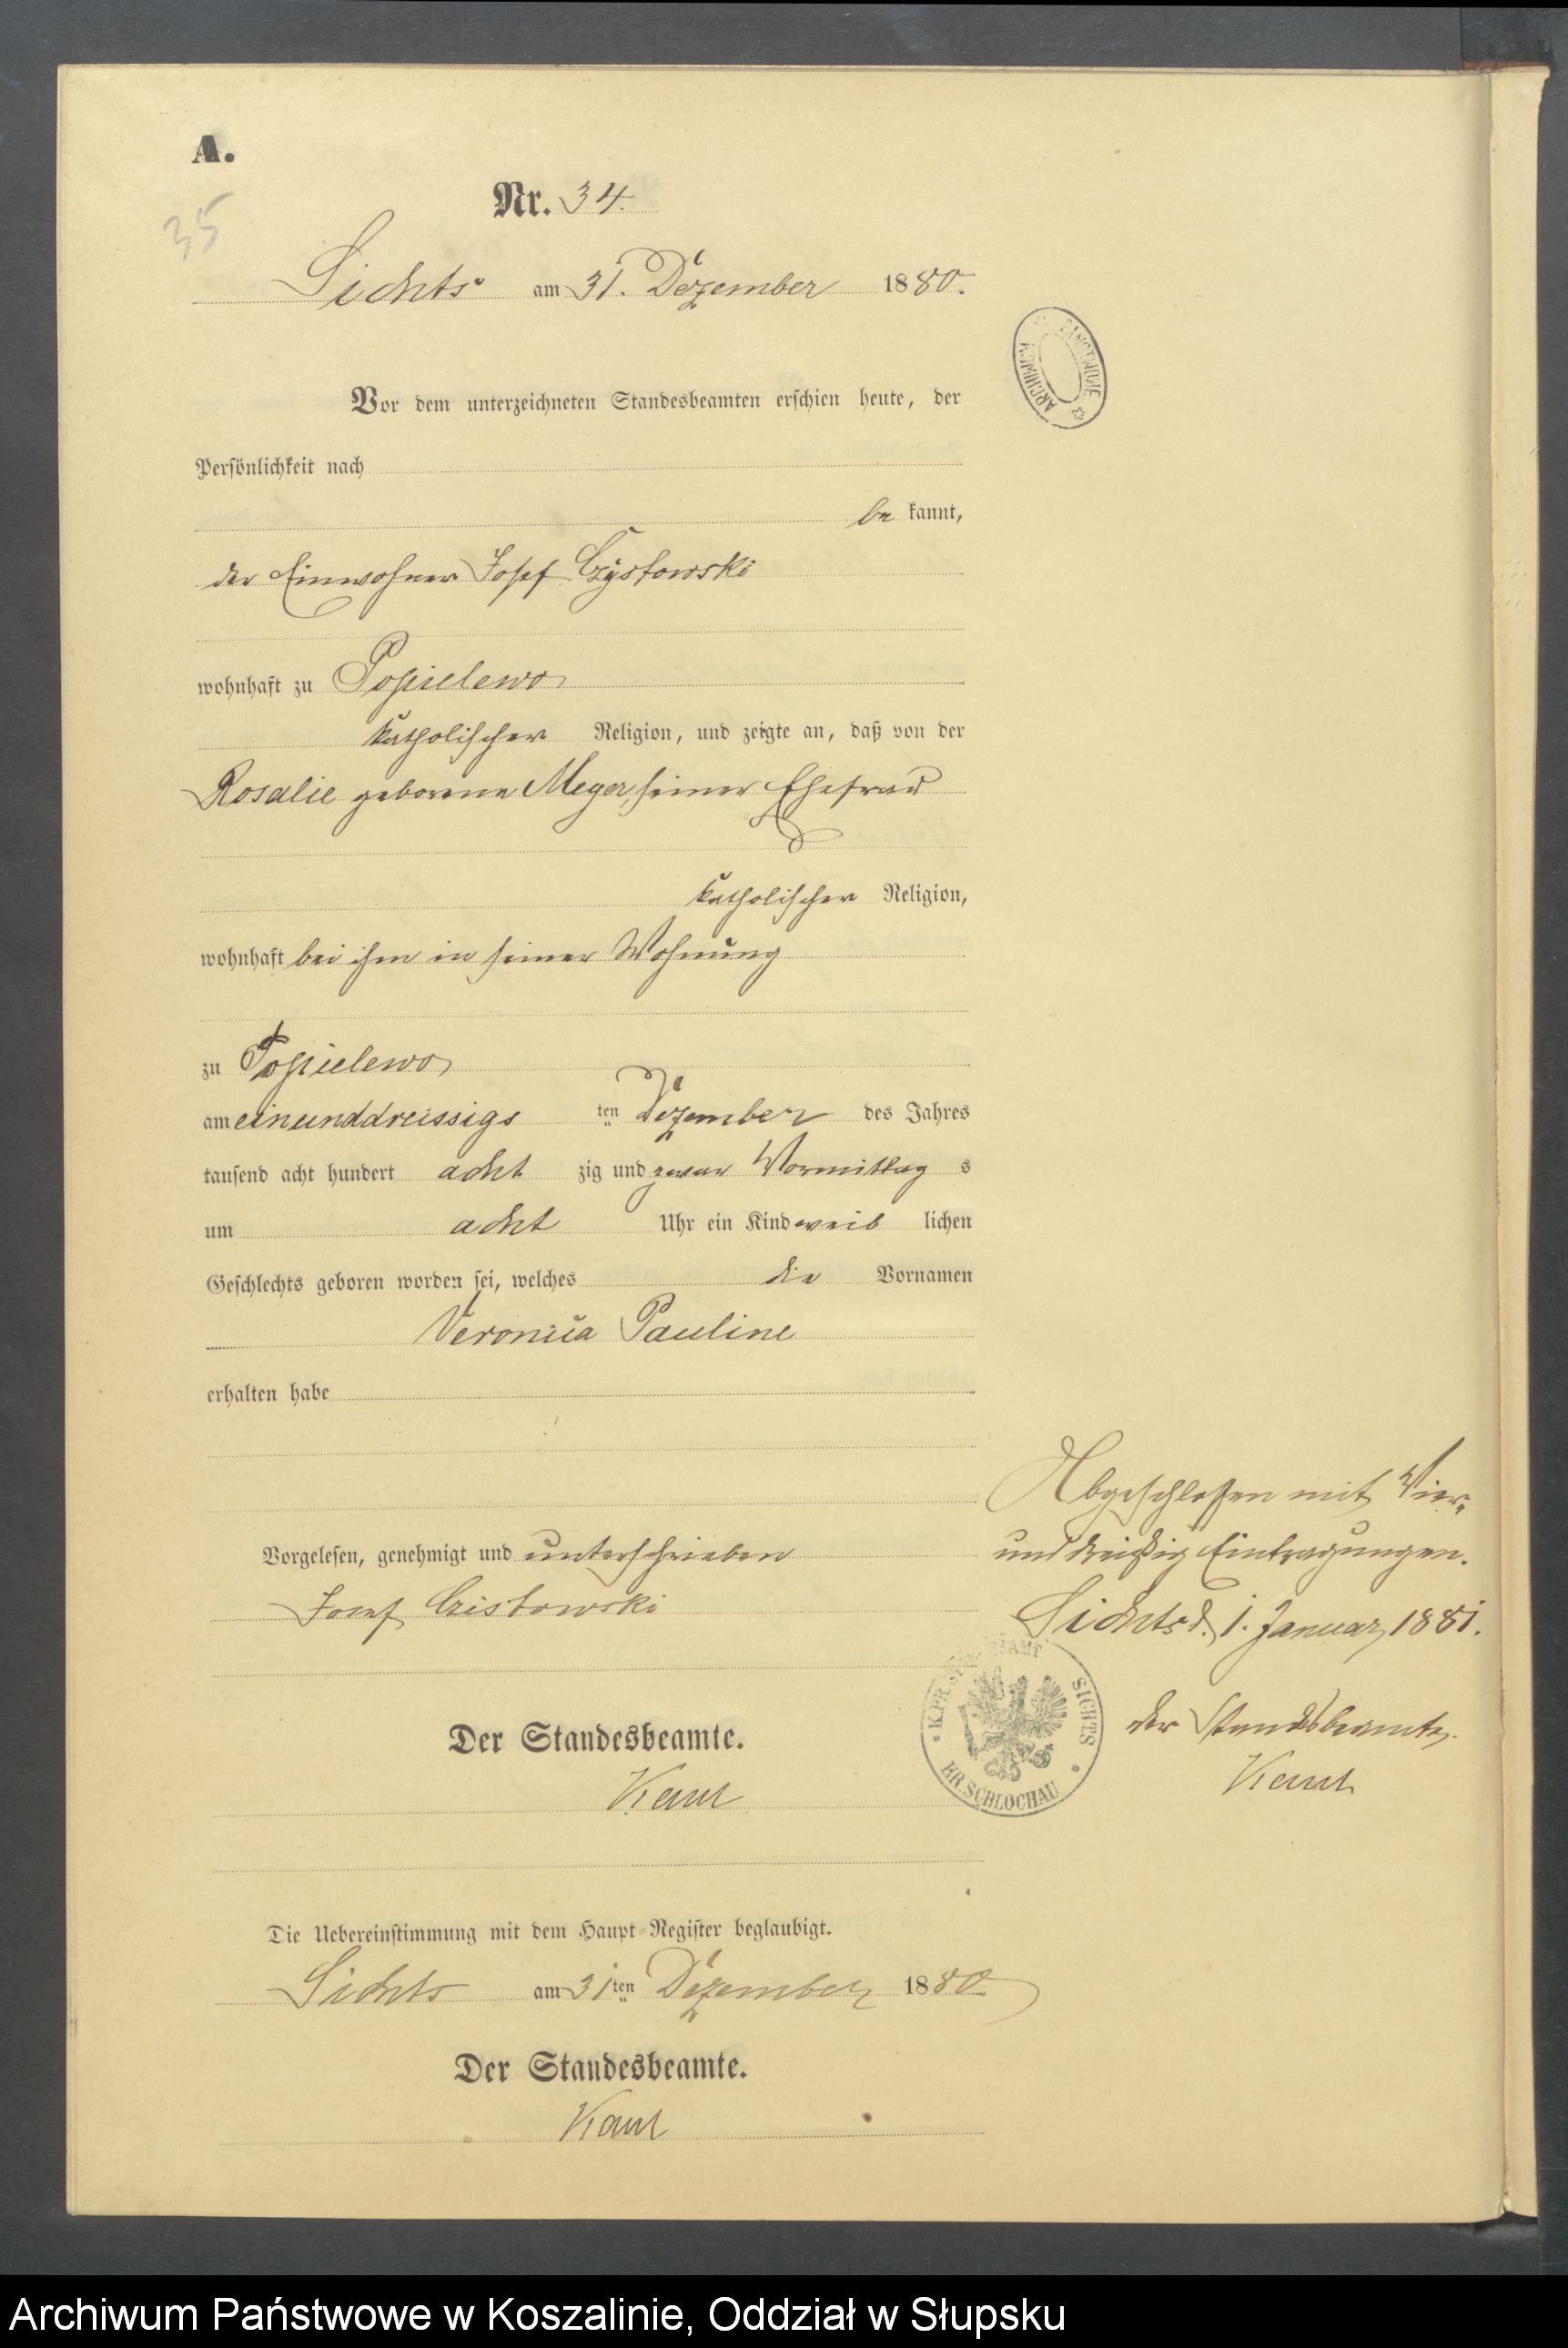 A.
35
Nr. 34.
Sichts am 31. Dezember 1880.
Vor dem unterzeichneten Standesbeamten erschien heute, der
Persönlichkeit nach
be kannt,
der Einwohner Josef Czystowski
wohnhaft zu Popielewo
katholischer Religion, und zeigte an, daß von der
Rosalie geborene Meyer, seiner Ehefrau
katholischer Religion,
wohnhaft bei ihm in seiner Wohnung
zu Popielewo
am einunddreissigs ten Dezember des Jahres
tausend acht hundert acht zig und zwar Vormittag s
um acht Uhr ein Kind weib lichen
Geschlechts geboren worden sei, welches die Vornamen
Veronica Pauline
erhalten habe
Vorgelesen, genehmigt und unterschrieben
Josef Czistowski
Der Standesbeamte.
Die Uebereinstimmung mit dem Haupt-Register beglaubigt.
Sichts am 31ten Dezember 1880
Der Standesbeamte.
ARCHIWUM PAŃSTWOWE
Abgeschlossen mit Vier-
und dreißig Eintragungen.
Sichts d. 1. Januar 1881.
der Standesbeamte.
SICHTS
KR. SCHLOCHAU
Archiwum Państwowe w Koszalinie, Oddział w Słupsku